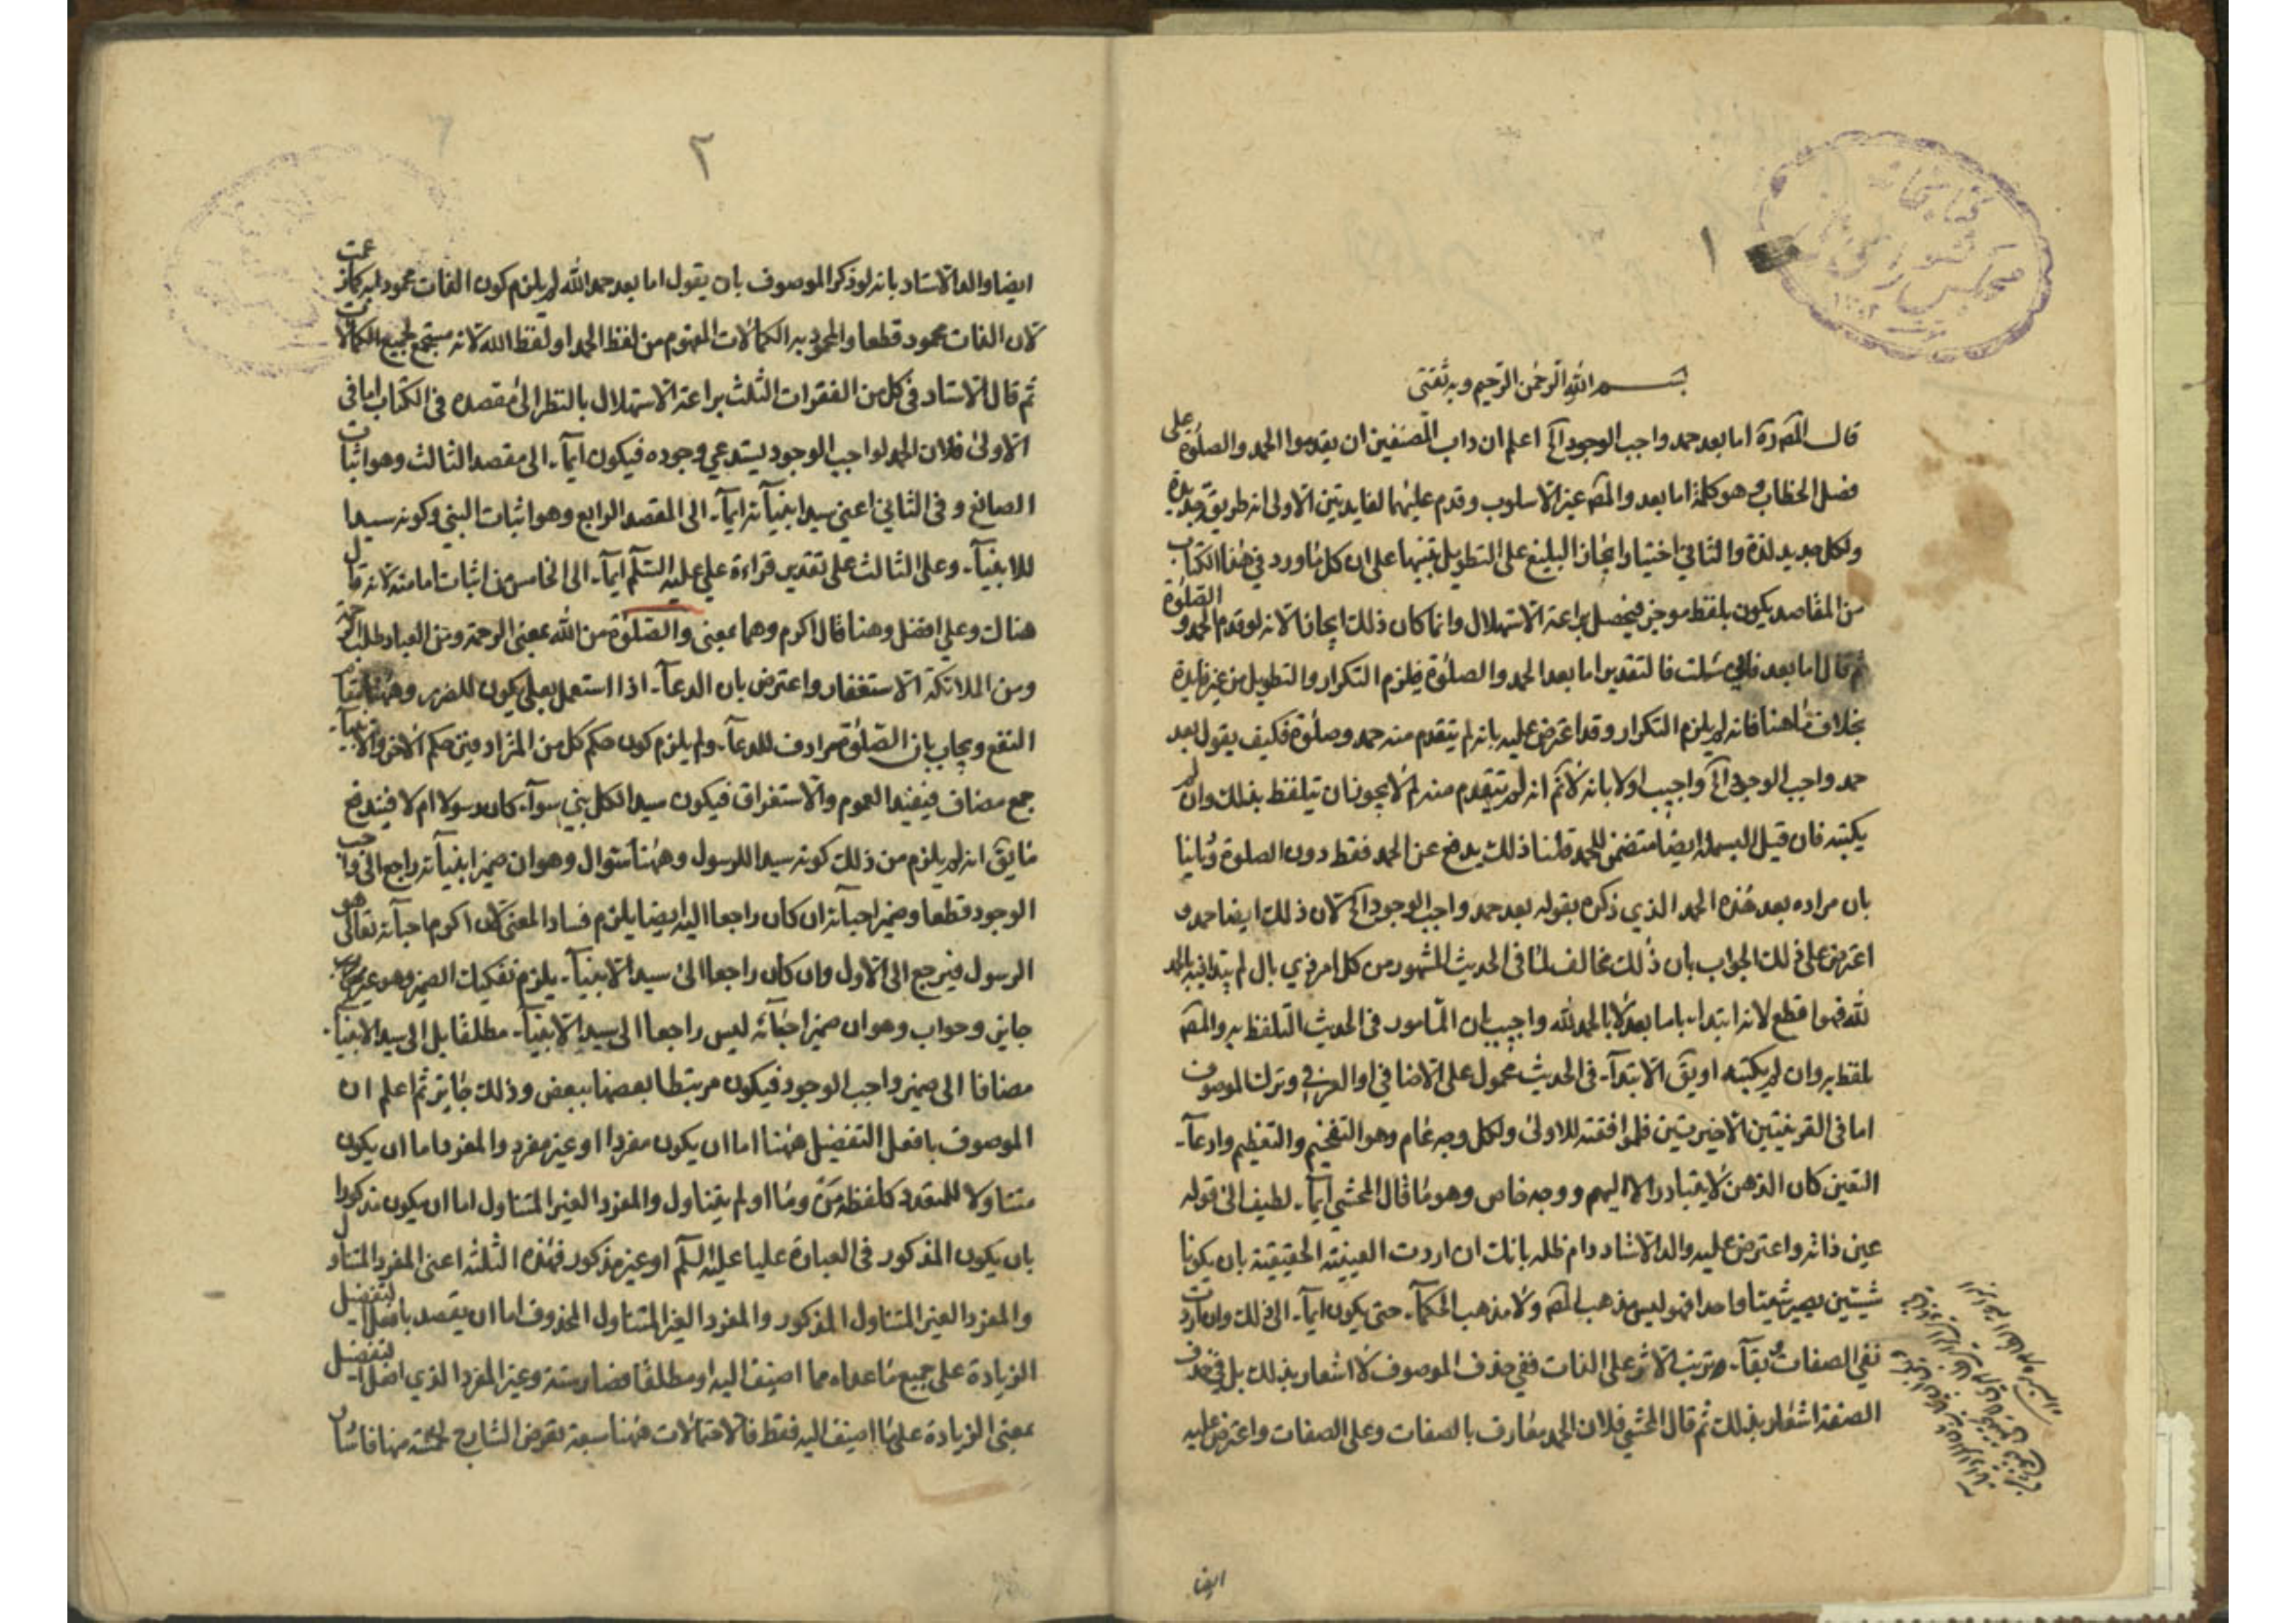 ١
بسم الله الرحمن الرحيم وبه ثقتى
قال المصره اما بعد حمد واجب الوجود الخ اعلم ان داب المصنفين ان يقدموا الحمد والصلوة على
فصل الخطاب وهو كلمة اما بعد والمص غير الاسلوب وقدم عليهما لفايدتين الاولى انه طريق جديدة
ولكل جديد لذة والثاني اختيار ايجاز البليغ على التطويل تنبيها على ان كل ما ورد في هذا الكتاب
من المقاصد يكون بلفظ موجز فيحصل براعة الاستهلال وانما كان ذلك ايجازا لانه لو قدم الحمد و الصلوة
ثم قال اما بعد فالتقدير اما بعد الحمد والصلوة فيلزم التكرار والتطويل من غير فايدة
بخلاف ما هنا فانه لم يلزم التكرار وقد اعترض عليه بانه لم يتقدم منه حمد وصلوة فكيف يقول بعد
حمد واجب الوجود الخ واجيب اولا بانه لانم انه لم يتقدم منه لم لا يجوز ان يتلفظ بذلك وان لم
يكتبه فان قيل البسملة ايضا متضمن للحمد قلنا ذلك يدفع عن الحمد فقط دون الصلوة وثانيا
بان مراده بعد هذه الحمد الذي ذكره بقوله بعد حمد واجب الوجود الخ لان ذلك ايضا حمد و
اعترض على ذلك الجواب بان ذلك مخالف لما فى الحديث المشهور من كل امر ذي بال لم يبتدا فيه بالحمد
لله فهو اقطع لانه ابتداء باما بعد لا بالحمد لله واجيب بان المامور فى الحديث التلفظ به والمص
تلفظ به وان لم يكتبه او يق الابتدآء فى الحديث محمول على الاضافي او العرفي وترك الموصوف
اما فى القرينتين الاخيرتين فلموافقته للاولى ولكل وجه عام وهو التفخيم والتعظيم وادعآء
التعين كان الذهن لا يتبادر الا اليهم ووجه خاص وهو ما قال المحشي ايمآء لطيف الى قوله
عين ذاته واعترض عليه والد الاستاد دام ظله بانك ان اردت العينية الحقيقية بان يكونا
شيئين يصير شيئا واحدا فهو ليس مذهب المص ولا مذهب الحكمآء حتى يكون ايمآء الى ذلك وان اردت
نفي الصفات بقآء وترتب الاثر على الذات ففي حذف الموصوف لا اشعار بذلك بل في حذف
الصفة اشعار بذلك ثم قال المحشي فلان الحمد يقارف بالصفات وعلى الصفات واعترض عليه
ايضا
٢
ايضا والد الاستاد بانه لو ذكر الموصوف بان يقول اما بعد حمد الله لم يلزم كون الذات محمود
لان الذات محمود قطعا والمحمود به الكمالات المفهوم من لفظ الحمد او لفظ الله لانه مستجمع لجميع الكمالات
ثم قال الاستاد فى كل من الفقرات الثلث براعة الاستهلال بالنظر الى مقصده فى الكتاب اما فى
الاولى فلان الحمد لواجب الوجود يستدعي وجوده فيكون ايمآء الى مقصد الثالث وهو اثبات
الصانع و فى الثاني اعني سيد انبيآئه ايمآء الى المقصد الرابع وهو اثبات النبي وكونه سيدا
للانبيآء وعلى الثالث على تقدير قراءة علي عليه السلم ايمآء الى الخامس من اثبات امامته لانه قال
هناك وعلي افضل وهنا قال اكرم وهما بمعنى والصلوة من الله بمعنى الرحمة ومن العباد طلب الرحمة
ومن الملائكة الاستغفار واعترض بان الدعآء اذا استعمل بعلى يكون للضرر وههنا
النفع ويجاب بان الصلوة مرادف للدعآء ولم يلزم كون حكم كل من المترادفين حكم الاخر والانبيآء
جمع مضاف فيفيد العموم والاستغراق فيكون سيدا لكل نبي سوآء كان رسولا ام لا فيندفع
ما يق انه لم يلزم من ذلك كونه سيدا للرسول وههنا سئوال وهو ان ضمير انبيآئه راجع الى واجب
الوجود قطعا وضمير احبآئه ان كان راجعا اليه ايضا يلزم فساد المعنى لان اكرم احبآئه تعالى هو
الرسول فيرجع الى الاول وان كان راجعا الى سيد الانبيآء يلزم تفكيك الضمير وهو غير
جايز وجواب وهو ان ضمير احبآئه ليس راجعا الى سيد الانبيآء مطلقا بل الى سيد الانبيآء
مضافا الى ضمير واجب الوجود فيكون مرتبطا بعضها ببعض وذلك جايز ثم اعلم ان
الموصوف بافعل التفضيل ههنا اما ان يكون مفردا او غير مفرد والمفرد اما ان يكون
متناولا للمتعدد كلفظه من وما او لم يتناول والمفرد الغير المتناول اما ان يكون مذكورا
بان يكون المذكور فى العبارة عليا عليه السلم او غير مذكور فهذه الثلثه اعنى المفرد المتناول
والمفرد الغير المتناول المذكور والمفرد الغير المتناول المحذوف اما ان يقصد بافعل التفضيل
الزيادة على جميع ما عداه مما اضيف اليه او مطلقا فصار ستة وغير المفرد الذي افعل التفضيل
بمعنى الزيادة على ما اضيف اليه فقط فالاحتمالات ههنا سبعة تعرض الشارح لخمسة منها